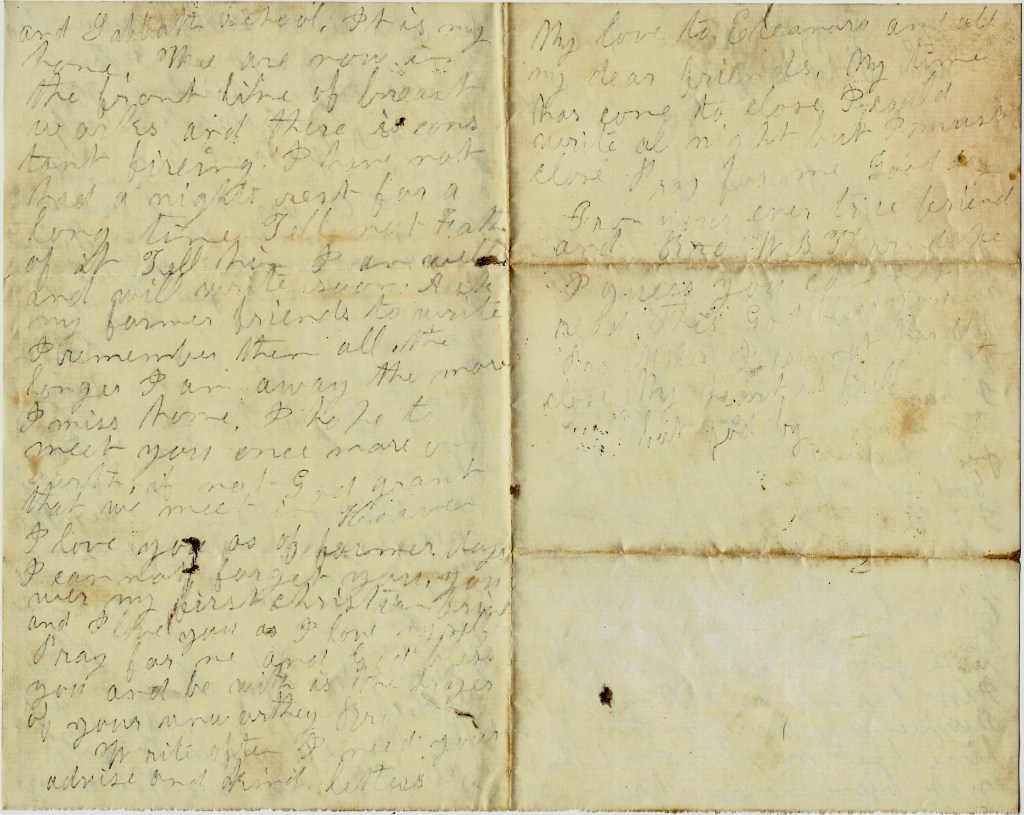 and Sabbath School. It is my
home. Wae are now in
the front line of breast
works and there is cons
tant fireing. I have not
had a nights rest for a
long time Tell not
of it Tell him I am well
and will write soon. Ask
my former friends to write
I remember them all. the
longer I am away the more
I miss home. I hope to
meet you once more on
earth, if not God grant
that we meet in Heaven
I love you as of former days
I can not forget you, you
wer my first christian
and I love you as I love my self
Pray for me and God bless
you and be with is the prayer
of your unworthey Bro
Write often I need your
advise and kind letters
My love to Eleanora and all
my dear friends. My time
has come to close I could
write al night but I must
close Pray for me Good
From your ever true friend
and Bro W B
I guess you can
read this God
I cannot
close My heart is full
but god by